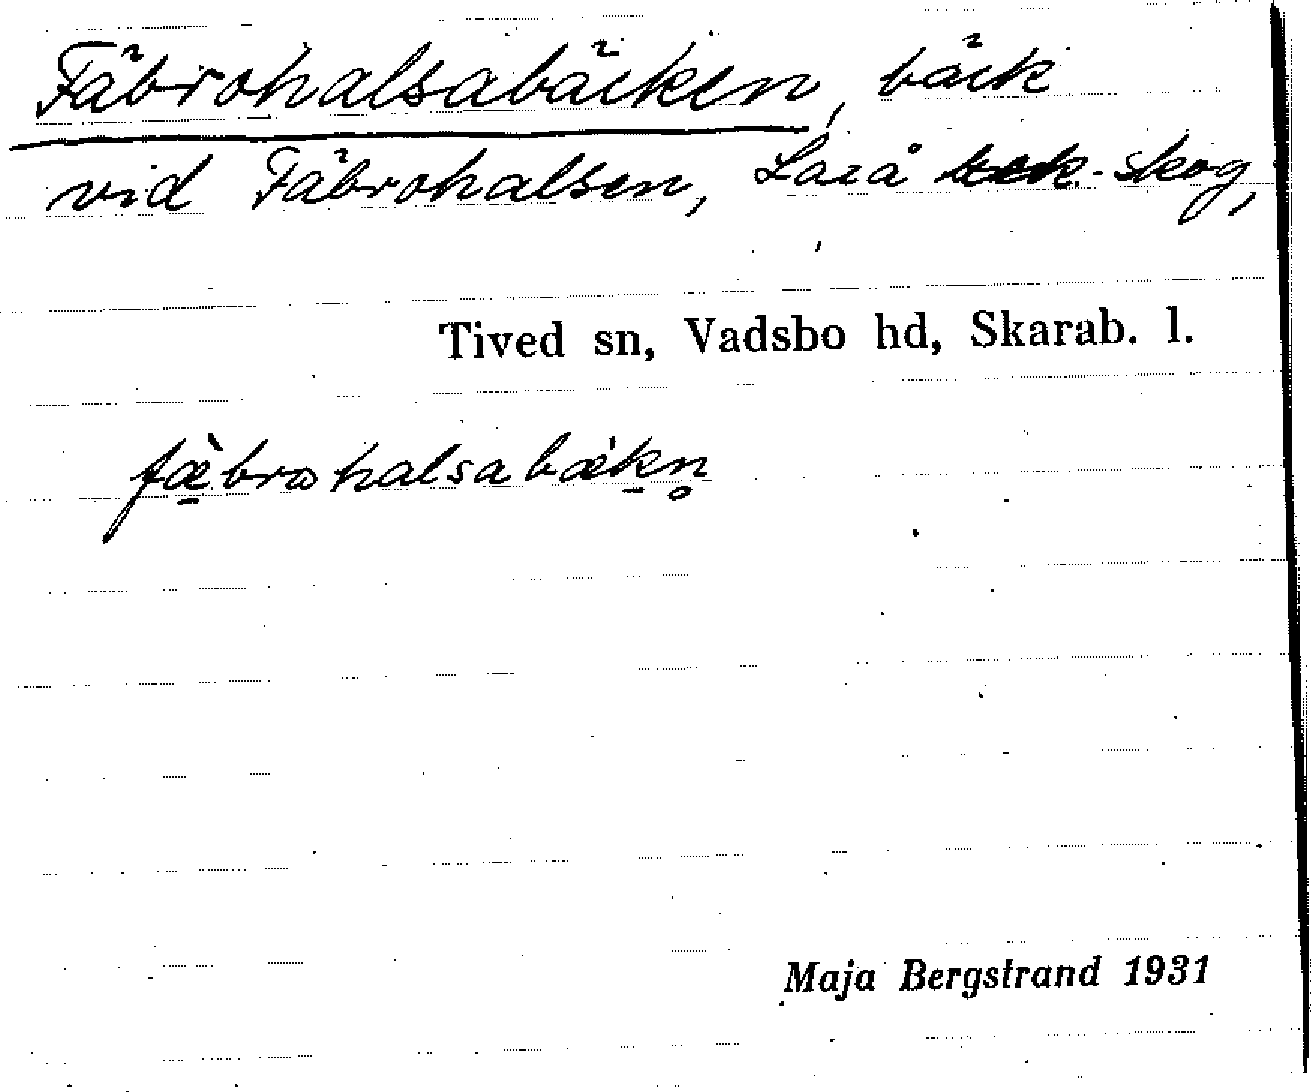 Fäbrohalsabäcken, bäck
vid Fäbrohalsen, Laxå - skog,
Tived sn, Vadsbo hd, Skarab. l.
fæ̀brohalsabækn̥
Maja Bergstrand 1931